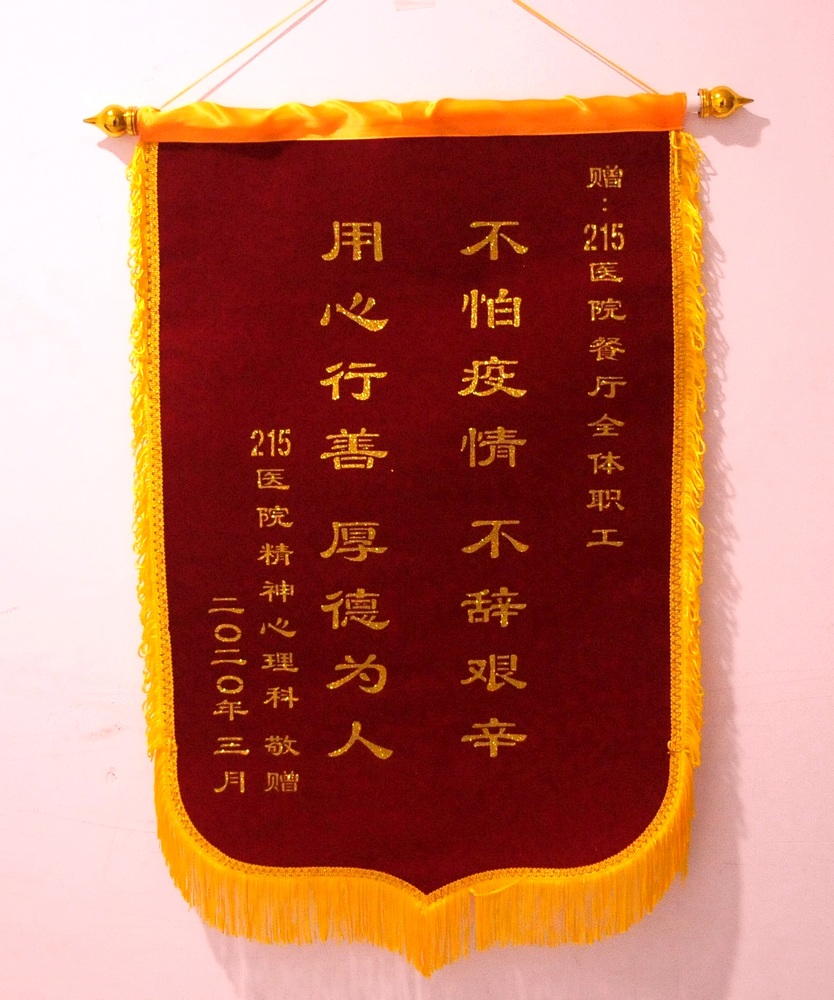 赠:215医院餐厅全体职工
不怕疫情 不辞艰辛
用心行善 厚德为人
215医院精神心理科 敬赠
二〇二〇年三月